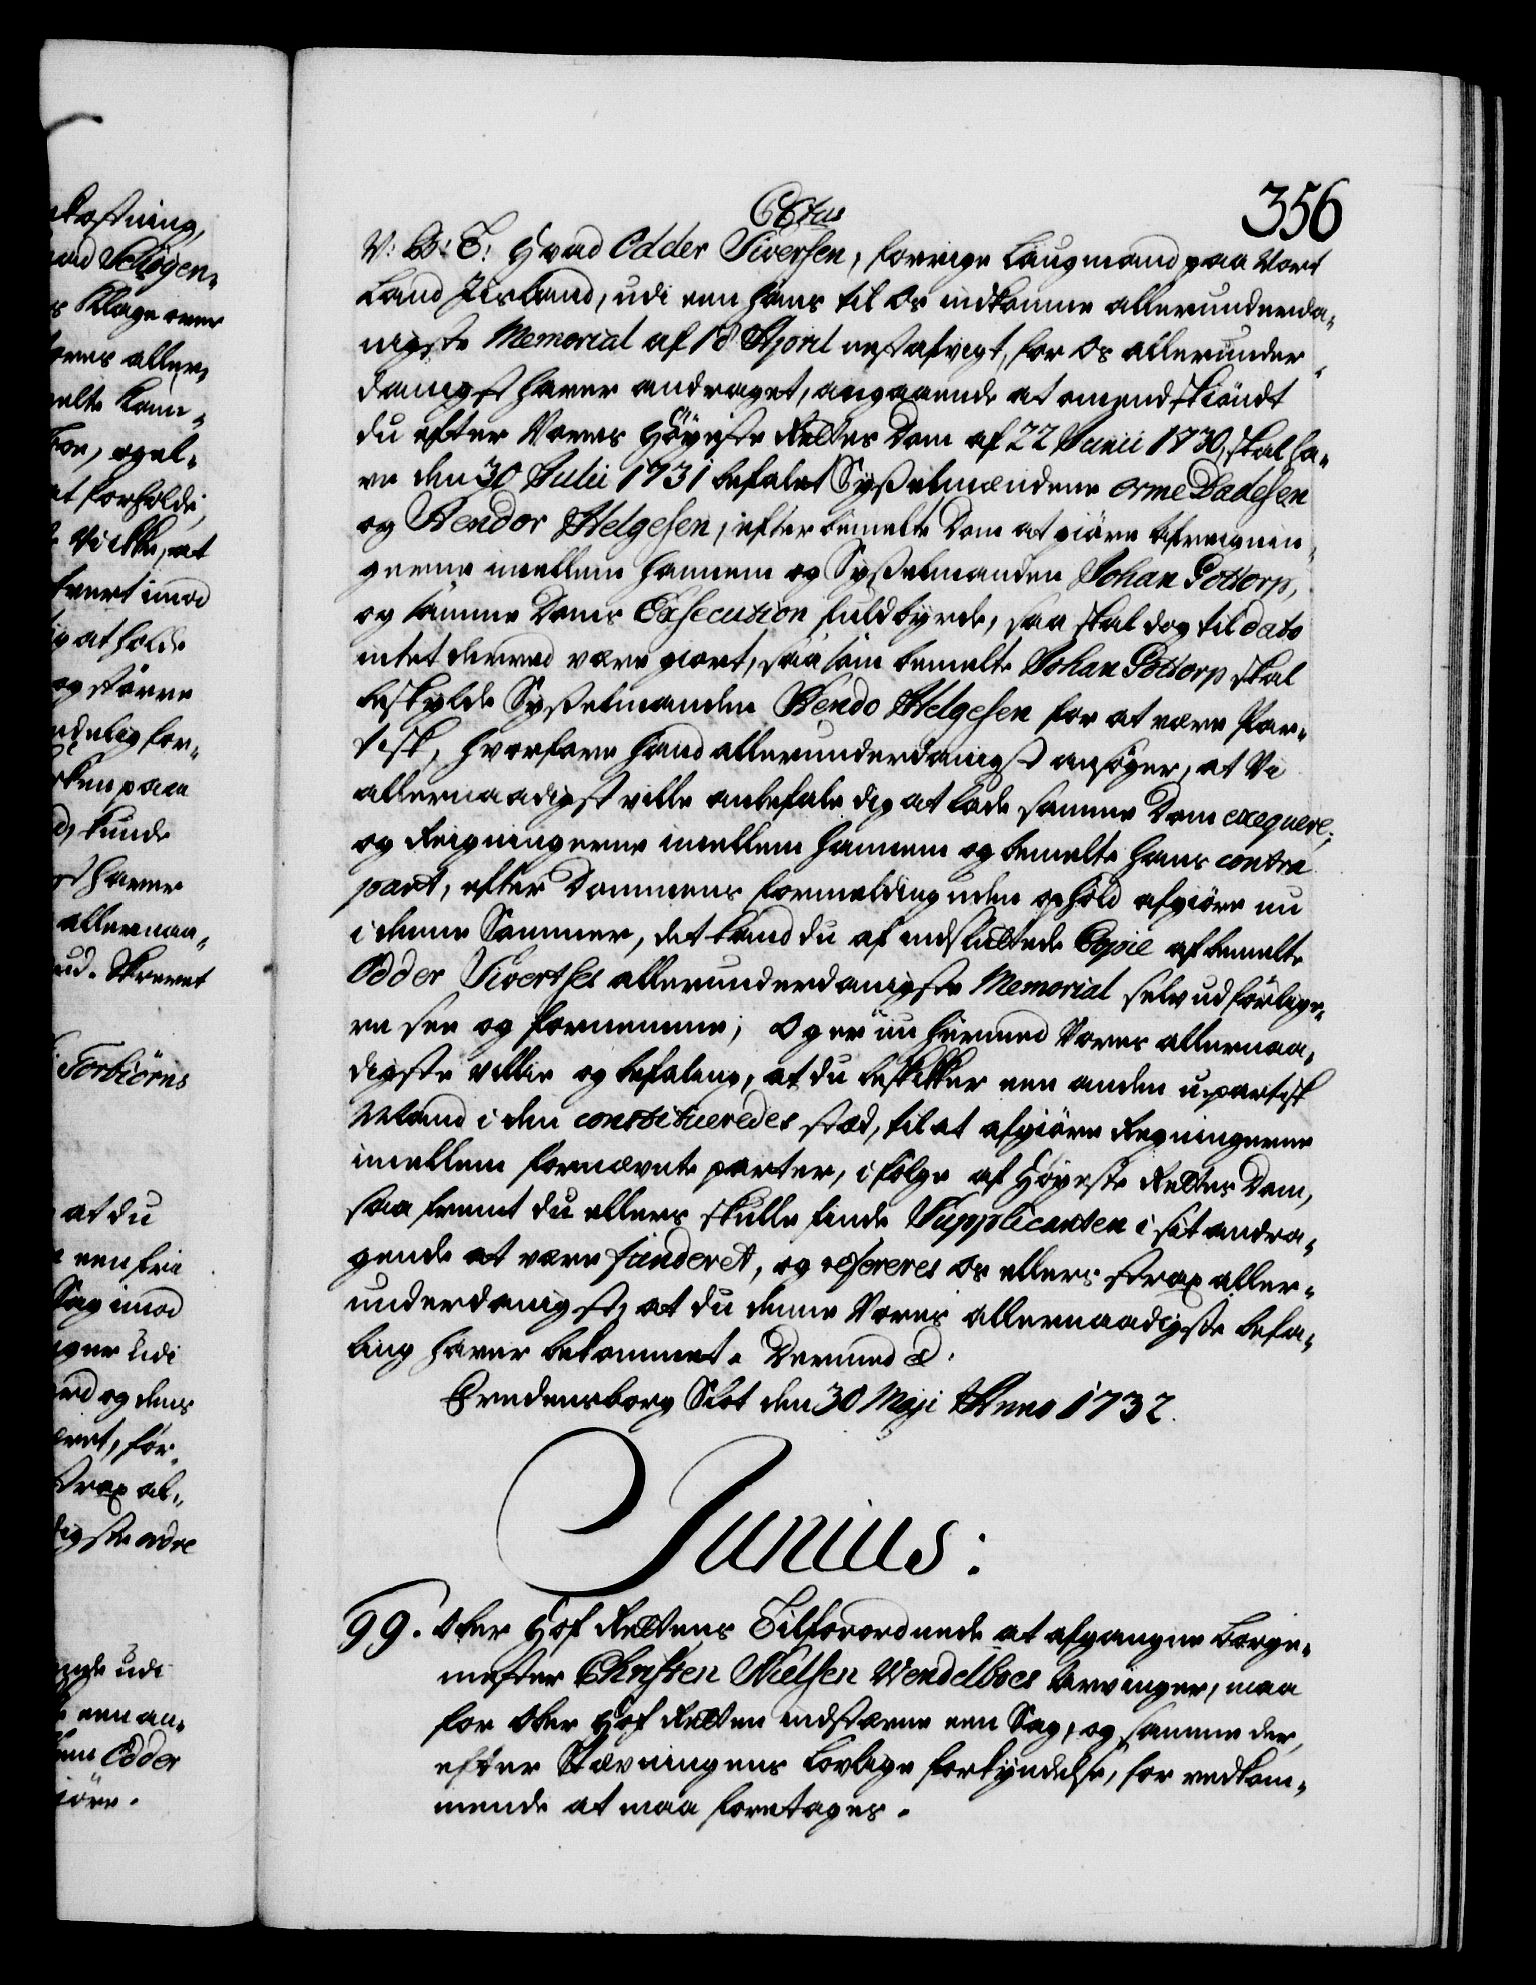 356
C6tus
V: G: T: Hvad Odder Siversen, forrige Laugmand paa Vort
Land Iisland, udi een hans til Os indkomne allerunderda-
nigste Memorial af 18 April nestafvigt, for Os allerunder-
danigst haver andraget, angaaende at omendskiöndt
du efter Vores Höyeste Rettes Dom af 22 Junii 1730, skal ha-
ve den 30 Julii 1731 befalet Sysselmændene Orme Dadesen
og Bendor Helgesen, efter bemelte Dom at giöre Afreignin-
gerne imellem hannem og Sysselmanden Johan Gottorp,
og samme Doms Execution fuldbyrde, saa skal dog til dato
intet derved være giort, saasom bemelte Johan Gottorp skal
beskylde Sysselmanden Bendo Helgesen for at være Par-
tisk, hvorfore hand allerunderdanigst ansöger, at Vi
allernaadigst ville anbefale dig at lade samme Dom exequere,
og Reigningerne imellem hannem og bemelte hans contra
part, efter Dommens formelding uden ophold afgiöre nu
i denne Sommer, det kand du af indsluttede Copie af bemelte
Odder Sivertses allerunderdanigste Memorial selv udförlige-
re see og fornemme; Og er nu hermed Vores allernaa-
digste villie og befaling, at du beskikker een anden upartisk
Mand i den constitueredes sted, til at afgiöre Regningerne
imellem fornævnte parter, i fölge af Höyeste Rettes Dom,
saa fremt du ellers skulle finde Supplicanten i sit andra-
gende at være funderet, og refereres Os ellers strax aller-
underdanigst, at du denne Vores allernaadigste befa-
ling haver bekommet. Dermed &.
Fredensborg Slot den 30 Maji Anno 1732.
Junius:
99. Ober Hof Rettens Tilforordnede at afgangne Borge-
mester Christen Nielsen Wendelboes Arvinger, maa
for Ober Hof Retten indstævne een Sag, og samme der,
efter Stævningens Lovlige forkyndelse, for vedkom-
mende at maa foretages.